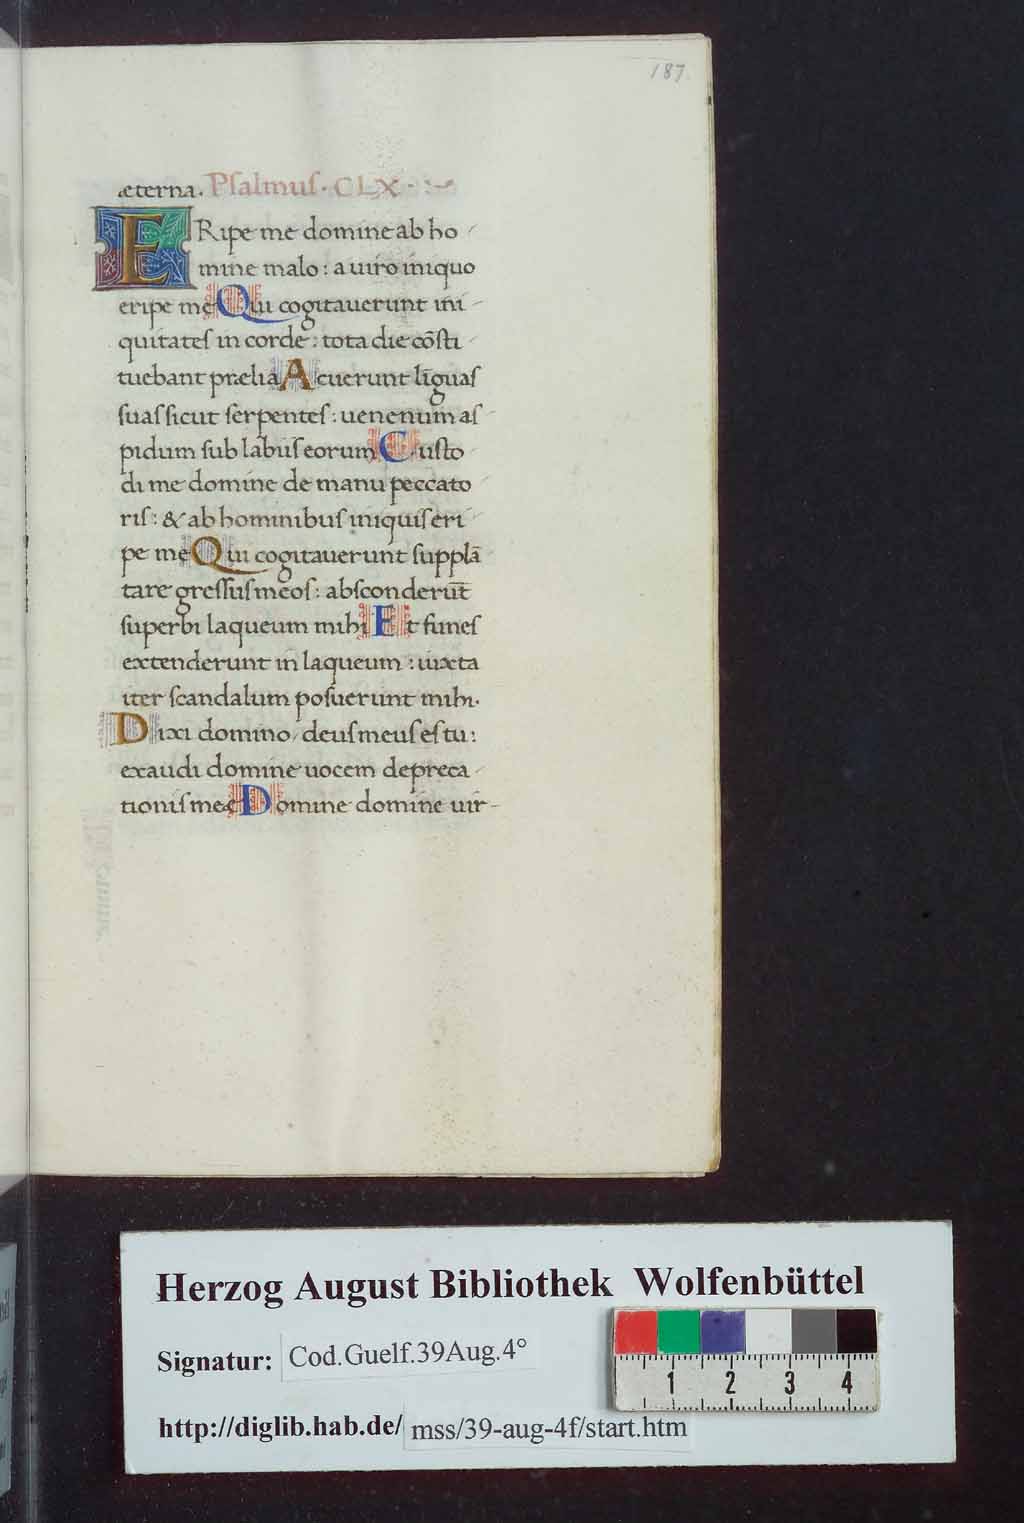 187
æterna. Psalmus. CLX.
ERipe me domine ab ho
mine malo: a uiro iniquo
eripe me Qui cogitauerunt ini
quitates in corde: tota die cōsti
tuebant prælia Acuerunt līguas
suas sicut serpentes: uenenum as
pidum sub labiis eorum Custo
di me domine de manu peccato
ris: & ab hominibus iniquis eri
pe me Qui cogitauerunt supplā
tare gressus meos: absconderūt
superbi laqueum mihi Et funes
extenderunt in laqueum: iuxta
iter scandalum posuerunt mihi.
Dixi domino deus meus es tu:
exaudi domine uocem depreca
tionis meę Domine domine uir-
Herzog August Bibliothek Wolfenbüttel
Signatur: Cod.Guelf.39Aug.4°
1 2 3 4
http://diglib.hab.de/ mss/39-aug-4f/start.htm